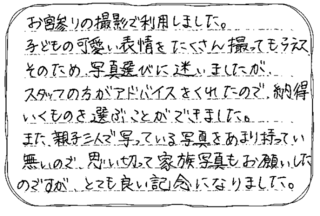 お宮参りの撮影で利用しました。
子どもの可愛い表情をたくさん撮ってもらえて
そのため、写真選びに迷いましたが、
スタッフの方がアドバイスをくれたので、納得
いくものを選ぶことができました。
また、親子三人で写っている写真をあまり持ってい
無いので、思い切って家族写真もお願いした
のですが、とても良い記念になりました。